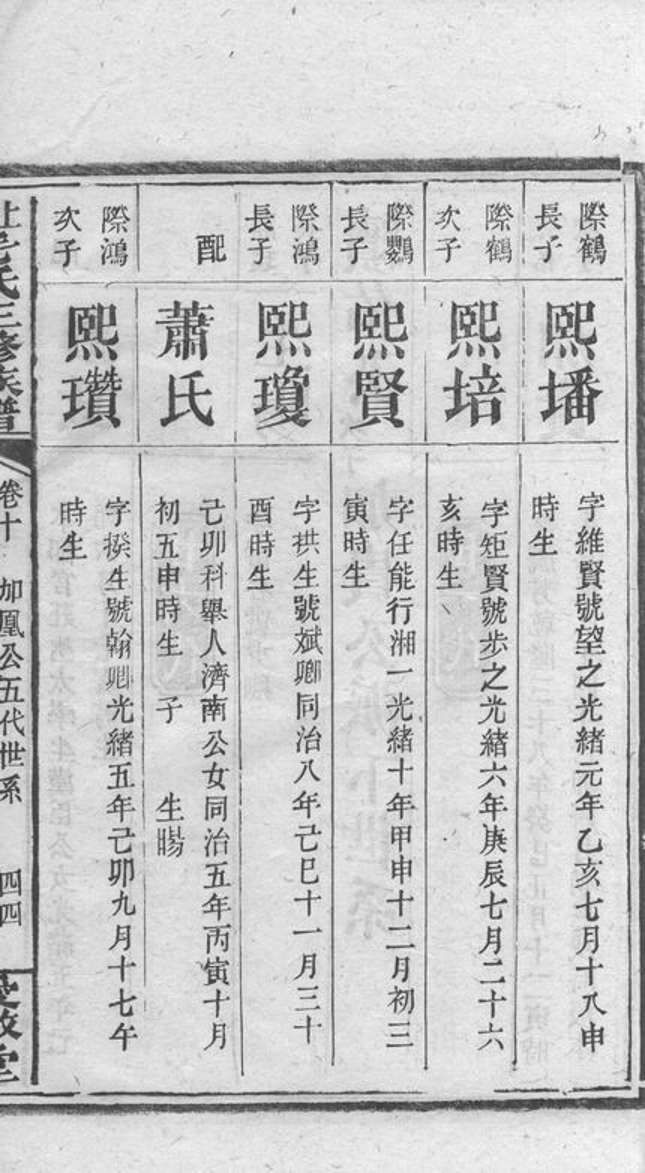 際鶴
長子
熙墦
字維賢號望之光緒元年乙亥七月十八申
時生
際鶴
次子
熙培
字矩賢號步之光緒六年庚辰七月二十六
亥時生
際鸚
長子
熙賢
字任能行湘一光緒十年甲申十二月初三
寅時生
際鴻
長子
熙瓊
字拱生號斌卿同治八年己巳十一月三十
酉時生
配
蕭氏
己卯科舉人濟南公女同治五年丙寅十月
初五申時生 子 生暘
際鴻
次子
熙瓚
字揆生號翰卿光緒五年己卯九月十七午
時生
氏三修族譜
卷十 加凰公五代世系 四四
愛敬堂